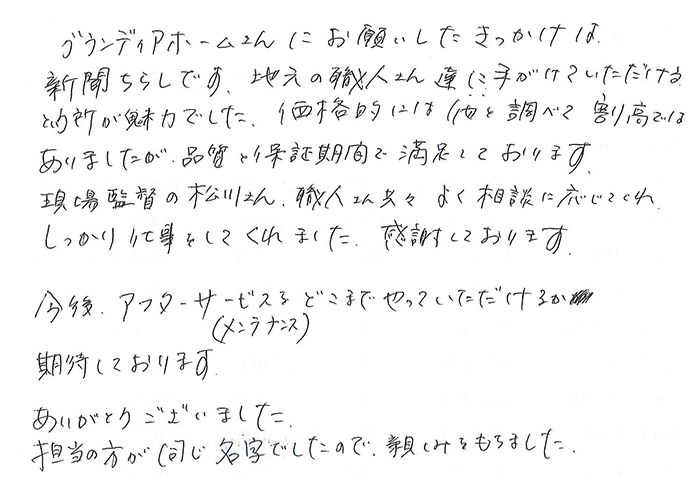 グランディアホームさんにお願いしたきっかけは、
新聞ちらしです、地元の職人さん達に手がけていただける
という所が魅力でした、価格的には他と調べて割り高では
ありましたが、品質と保証期間で満足しております。
現場監督の松川さん、職人さん共々よく相談に応じてくれ、
しっかり仕事をしてくれました、感謝しております。
今後、アフターサービスをどこまでやっていただけるか
(メンテナンス)
期待しております。
ありがとうございました。
担当の方が同じ名字でしたので、親しみをもちました。